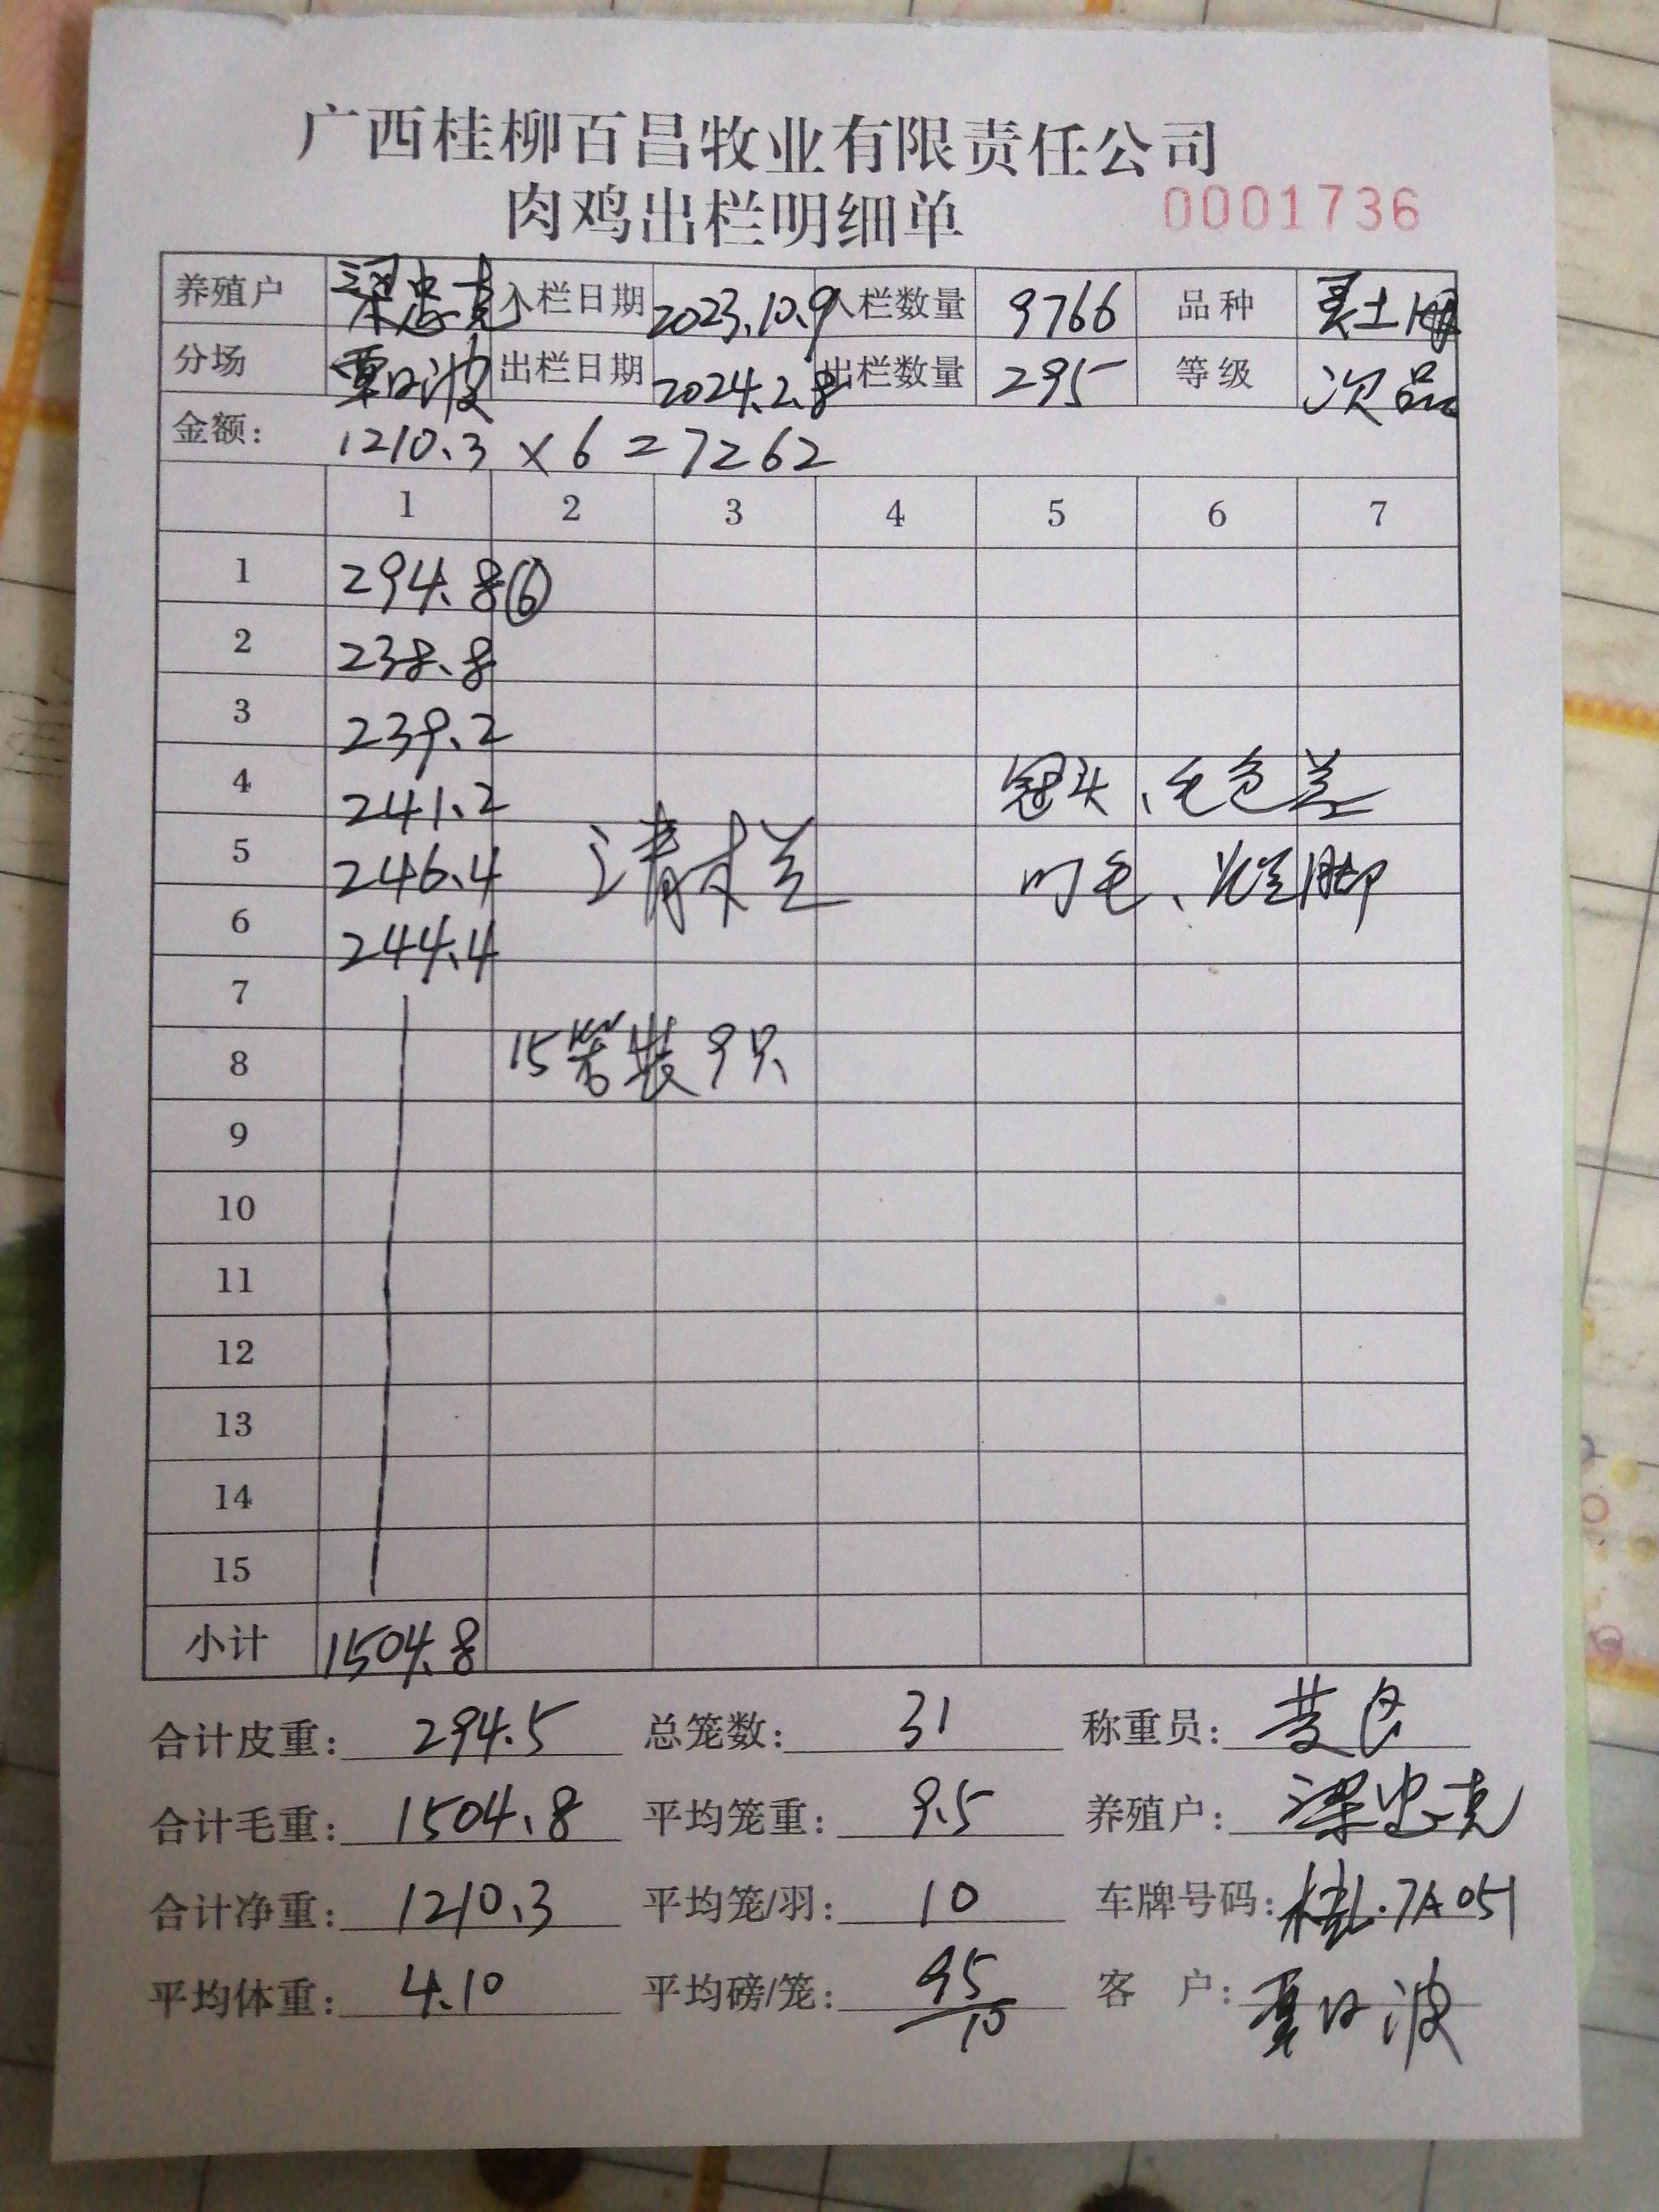 广西桂柳百昌牧业有限责任公司
肉鸡出栏明细单 0001736
养殖户 梁忠克 入栏日期 2023.10.9 入栏数量 9766 品种 土
分场 覃日波 出栏日期 2024.2.8 出栏数量 295 等级 次品
金额: 1210.3 × 6 = 7262
1 2 3 4 5 6 7
1 294.8 ⑥
2 238.8
3 239.2
4 241.2 冠头、毛色差
5 246.4 清栏 毛、脚
6 244.4
7
8 15笼装9只
9
10
11
12
13
14
15
小计 1504.8
合计皮重: 294.5 总笼数: 31 称重员: 黄
合计毛重: 1504.8 平均笼重: 9.5 养殖户: 梁忠克
合计净重: 1210.3 平均笼/羽: 10 车牌号码: 桂L.7A051
平均体重: 4.10 平均磅/笼: 95/10 客户: 覃日波